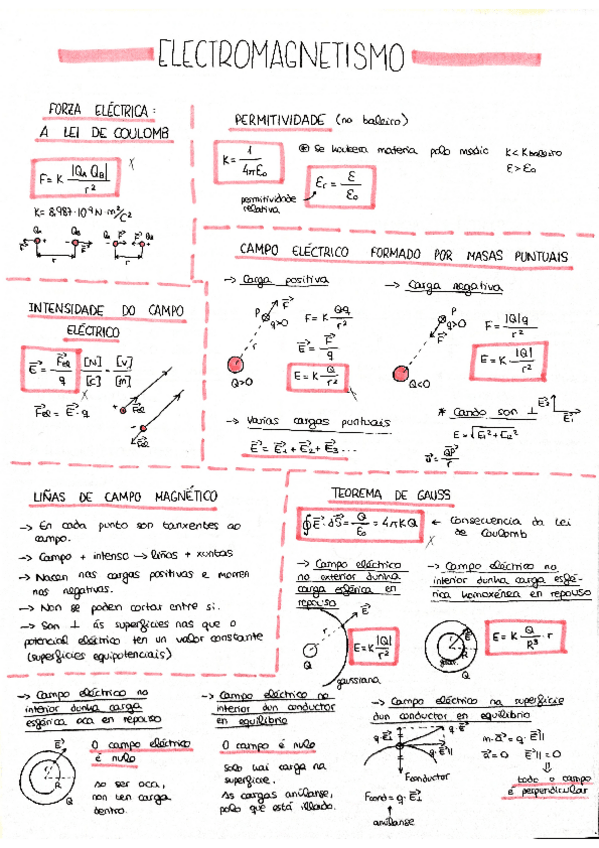 ELECTROMAGNETISMO
FORZA ELÉCTRICA:
A LEI DE COULOMB
F = K |QA QB| / r²
K = 8.987·10⁹ N·m²/C²
QA QB QA F F QB
F r F r
PERMITIVIDADE (no baleiro)
K = 1 / 4πε₀
⊛ se houbera materia polo medio K < K baleiro
ε > ε₀
εr = ε / ε₀
permitividade
relativa
INTENSIDADE DO CAMPO
ELÉCTRICO
E = Fel / q [N] / [C] = [V] / [m]
Fel = E · q
+ Fel
- Fel
CAMPO ELÉCTRICO FORMADO POR MASAS PUNTUAIS
→ Carga positiva
P F
q>0
r
Q>0
F = K Qq / r²
E = F / q
E = K Q / r²
→ Carga negativa
P
q>0
F
Q<0
F = |Q|q / r²
E = K · |Q| / r²
→ Varias cargas puntuais
E = E₁ + E₂ + E₃ ...
* Cando son ⊥ E₂ E₁
E = √E₁² + E₂²
u = QP / r
LIÑAS DE CAMPO MAGNÉTICO
→ En cada punto son tanxentes ao
campo.
→ Campo + intenso → liñas + xuntas
→ Nacen nas cargas positivas e morren
nas negativas.
→ Non se poden cortar entre si.
→ Son ⊥ ás superficies nas que o
potencial eléctrico ten un valor constante
(superficies equipotenciais)
TEOREMA DE GAUSS
∮ E · dS = Q / ε₀ = 4πKQ ← Consecuencia da Lei
de Coulomb
→ Campo eléctrico
no exterior dunha
carga esférica en
repouso
E
r
Q
E = K |Q| / r²
gaussiana
→ Campo eléctrico no
interior dunha carga esfé-
rica homoxénea en repouso
Q
E = K · Q / R³ · r
→ Campo eléctrico no
interior dunha carga
esférica oca en repouso
E
R
Q
O campo eléctrico
é nulo
ao ser oca,
non ten carga
dentro.
→ Campo eléctrico no
interior dun conductor
en equilibrio
O campo é nulo
Solo hai carga na
superficie.
As cargas anúlanse,
polo que está illado.
→ Campo eléctrico na superficie
dun conductor en equilibrio
q·E
q·E⊥
q·E||
Fconductor
Fcond = q·E⊥
anúlanse
m·a = q·E||
a = 0 E|| = 0
todo o campo
é perpendicular